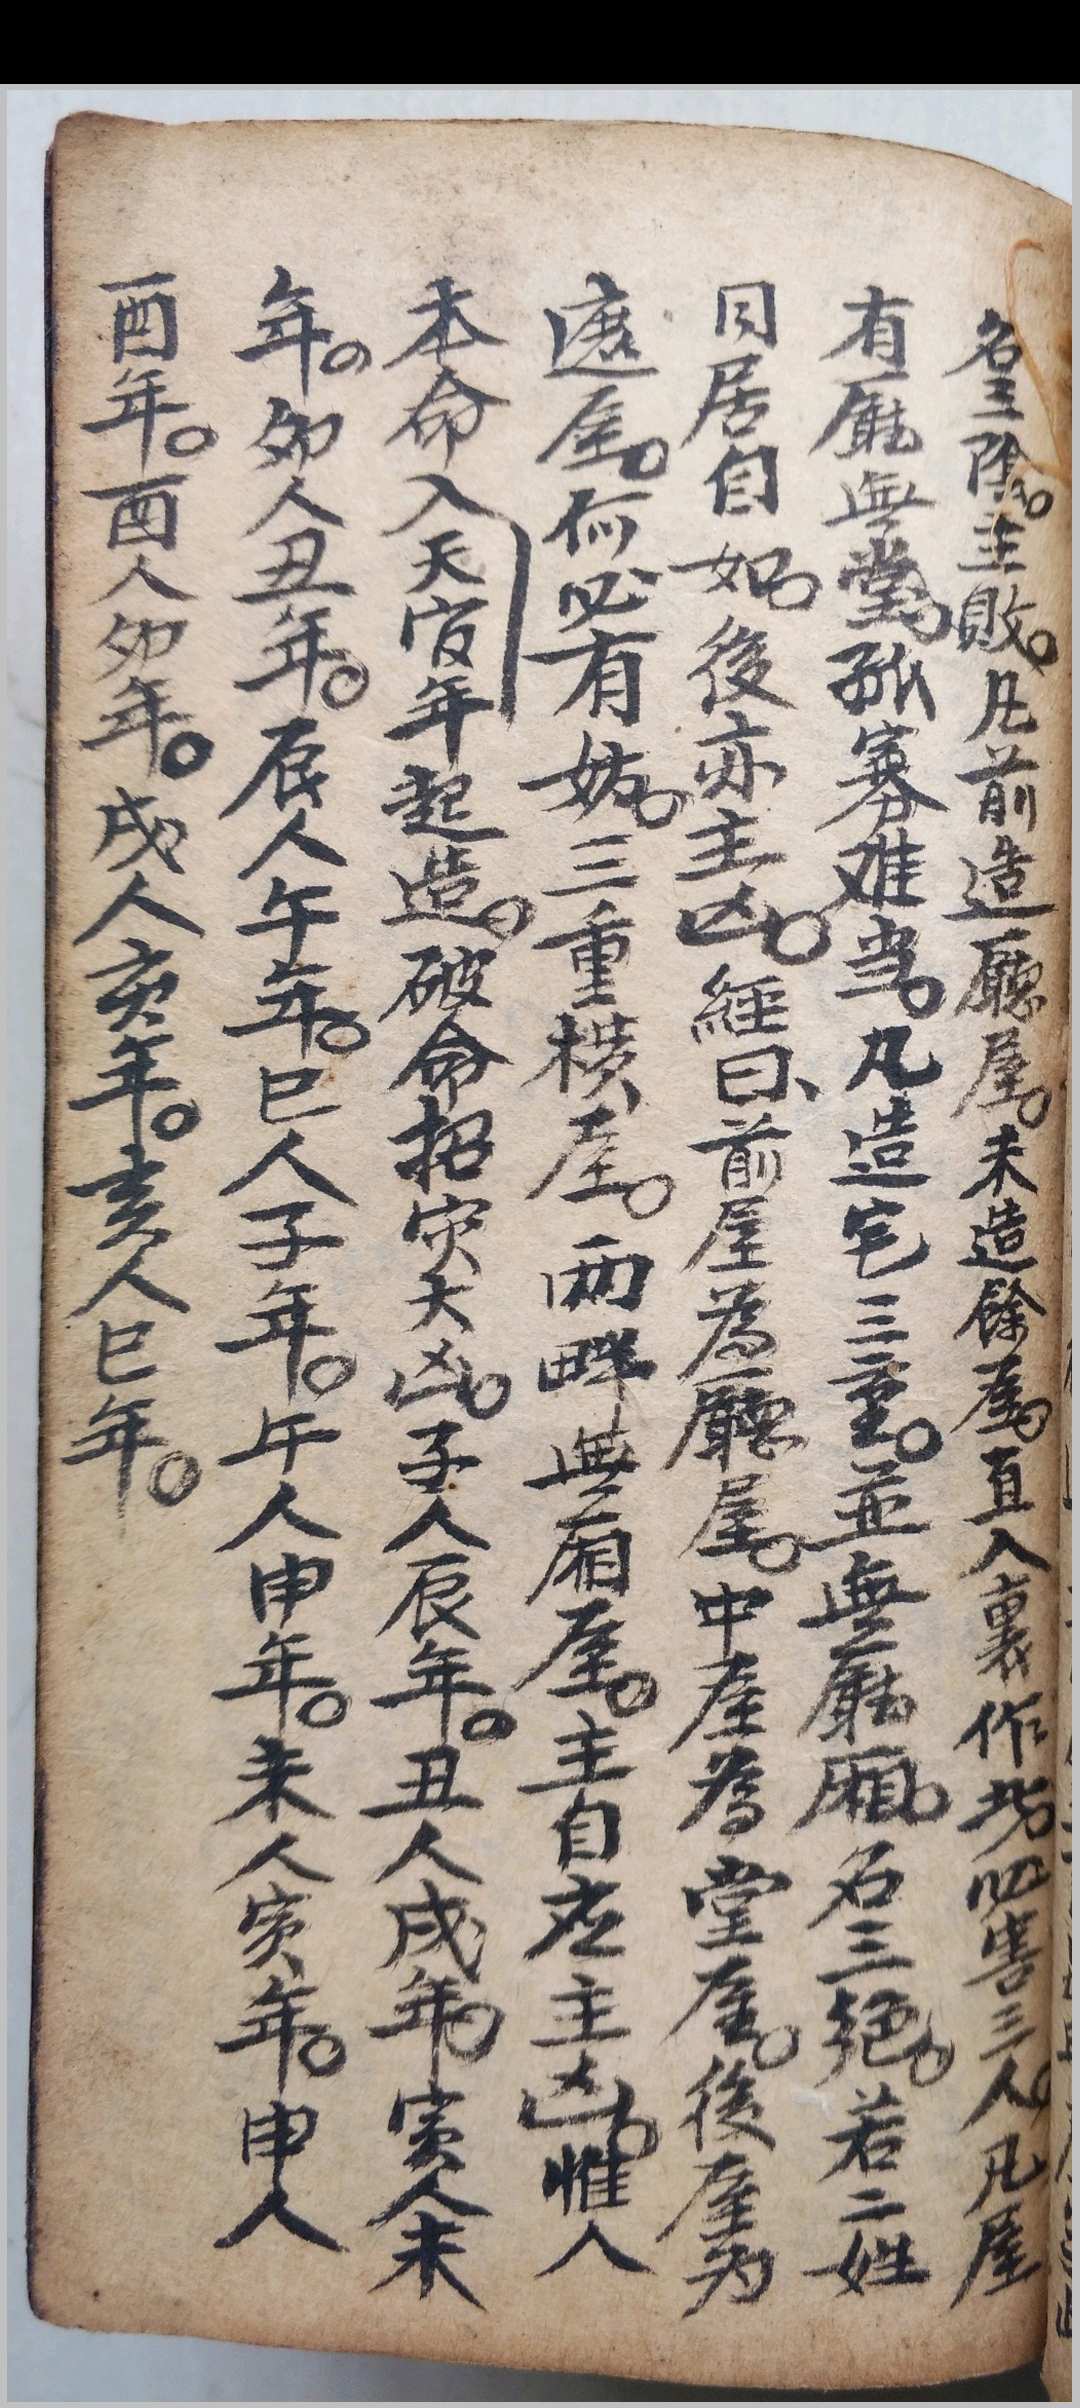 名三陰。主敗。凡前造廳屋。未造餘屋。直入裏作場。必害三人。凡屋
有廳無堂。孤寡难当。凡造宅三重。並無廳廂。名三絕。若二姓
同居自如。後亦主凶。經曰、前屋為廳屋。中屋為堂屋。後屋为
遮屋。何必有妨。三重横屋。兩畔無廂屋。主自 主凶。惟人
本命入天官年起造。破命招灾大凶。子人辰年。丑人戌年。寅人未
年。卯人丑年。辰人午年。巳人子年。午人申年。未人寅年。申人
酉年。酉人卯年。戌人亥年。亥人巳年。